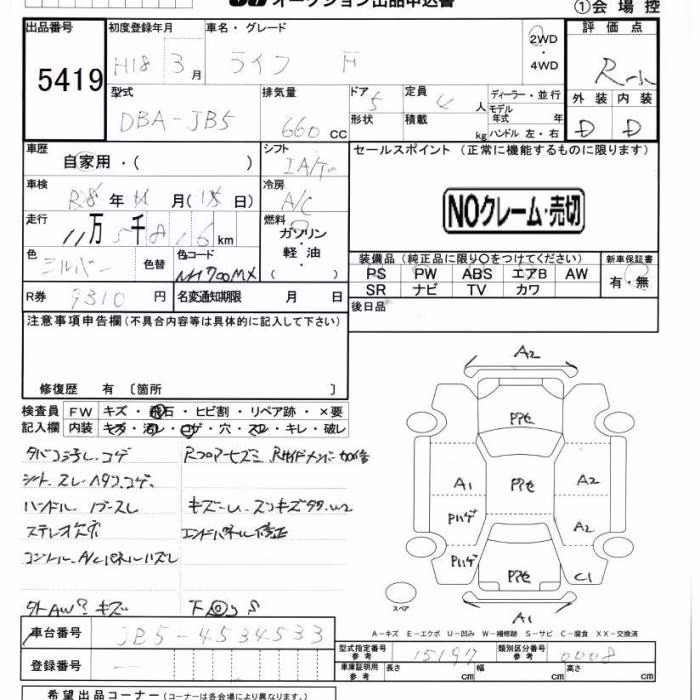 オークション出品申込書
①会場控
出品番号
5419
初度登録年月
H18 3月
車名・グレード
ライフ F
2WD
・
4WD
評価点
R-小
型式
DBA-JB5
排気量
660 CC
ドア 5
形状
定員 4 人
積載 kg
ディーラー・並行
モデル年式 年式
ハンドル 左・右
外装 内装
D D
車歴
自家用・( )
シフト
IA/T
セールスポイント (正常に機能するものに限ります)
車検
R8年 月(15日)
冷房
A/C
NOクレーム・売切
走行
11万5千816km
燃料
ガソリン
・
軽油
( )
色
シルバー
色替
色コード
NH700MX
装備品 (純正品に限り〇をつけてください)
新車保証書
PS PW ABS エアB AW
有・無
SR ナビ TV カワ
R券
9310円
名変通知期限 月 日
後日品
注意事項申告欄(不具合内容等は具体的に記入して下さい)
修復歴 有〔箇所 〕
検査員 FW キズ・飛石・ヒビ割・リペア跡・×要
記入欄 内装 キズ・汚レ・コゲ・穴・スレ・キレ・破レ
シート、スレ・ヘタリ、コゲ、
ハンドル
ステレオ欠品
コントロール、A/Cパネルハズレ
エンドパネル修正
キズ
A2
P7セ
A1
P7セ
A2
Pハゲ
A2
Pハゲ
P7セ
C1
スペア
A1
A-キズ E-エクボ U-凹み W-補修跡 S-サビ C-腐食 XX-交換済
車台番号
JB5-4534533
型式指定番号
参考
15197
類別区分番号
参考
0008
登録番号
車庫証明用
参考
長さ cm
幅 cm
高さ cm
希望出品コーナー(コーナーは各会場により異なります。)